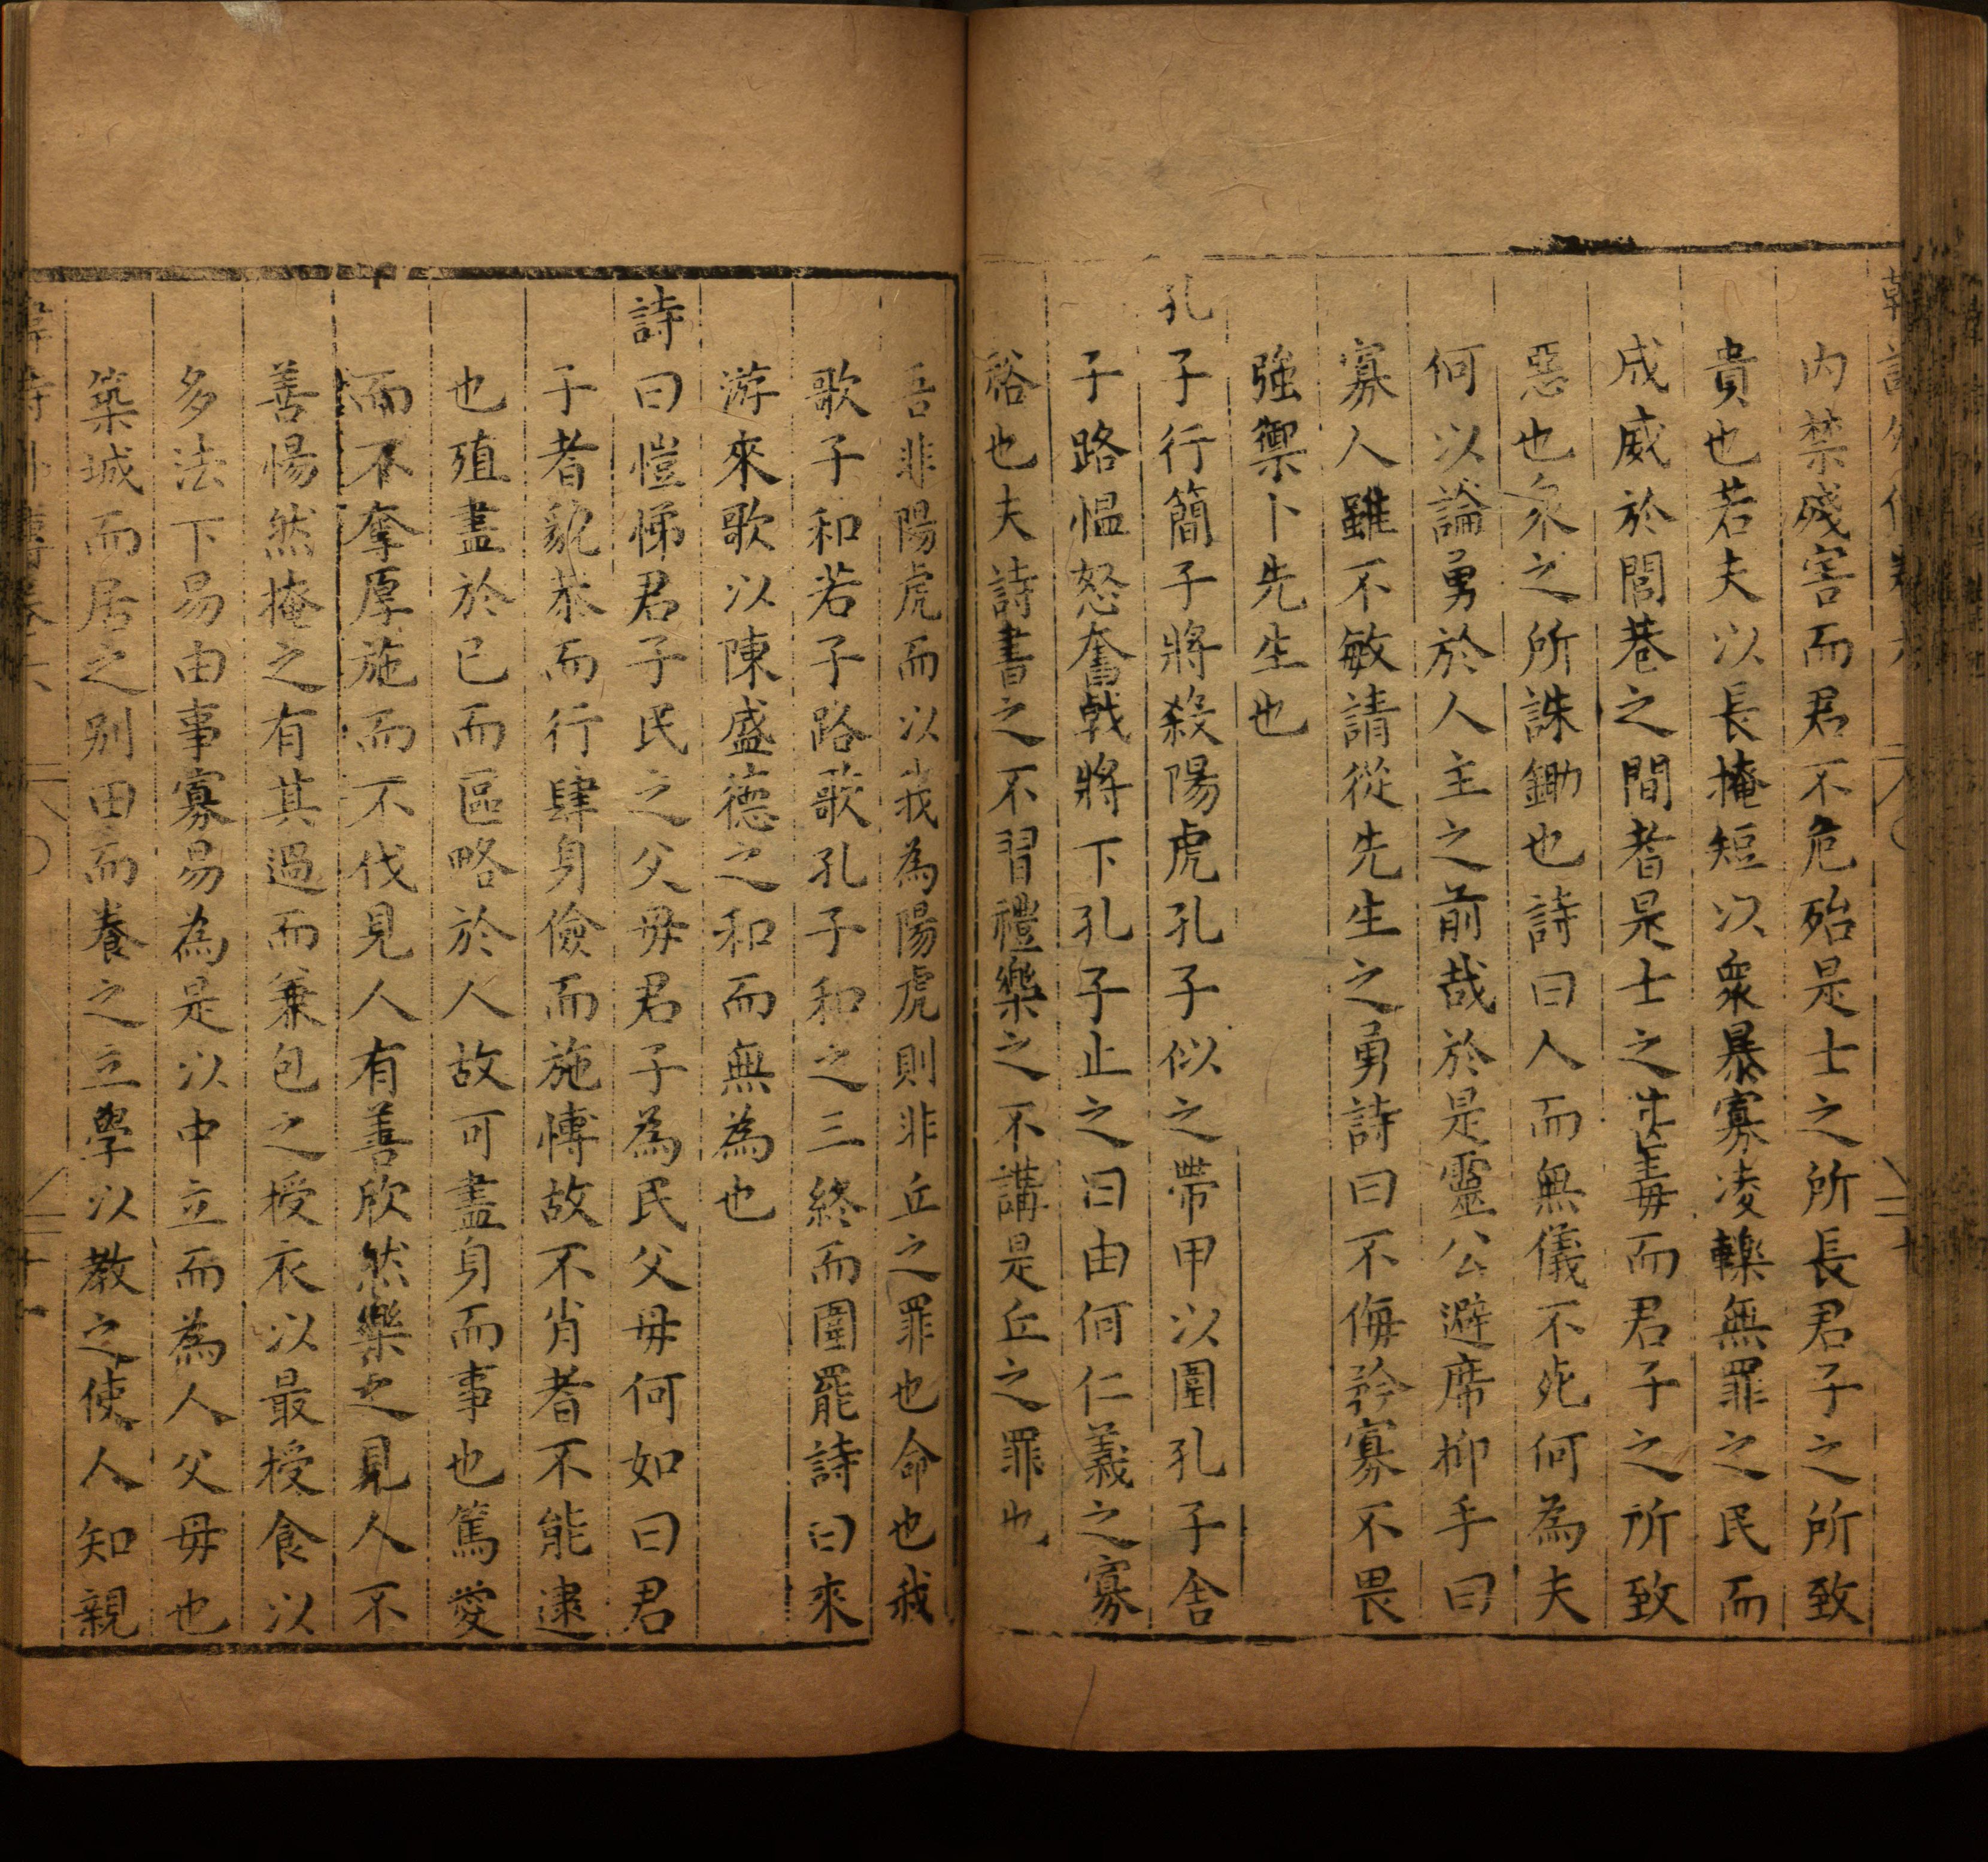 内禁殘害而君不危殆是士之所長君子之所致
貴也若夫以長掩短以衆暴寡凌轢無罪之民而
成威於閭巷之間者是士之甚毒而君子之所致
惡也衆之所誅鋤也詩曰人而無儀不死何為夫
何以論勇於人主之前哉於是靈公避席抑手曰
寡人雖不敏請從先生之勇詩曰不侮矜寡不畏
強禦卜先生也
孔子行簡子將殺陽虎孔子似之帶甲以圍孔子舍
子路愠怒奮戟將下孔子止之曰由何仁義之寡
裕也夫詩書之不習禮樂之不講是丘之罪也
吾非陽虎而以我為陽虎則非丘之罪也命也我
歌子和若子路歌孔子和之三終而圍罷詩曰來
游來歌以陳盛德之和而無為也
詩曰愷悌君子民之父毋君子為民父毋何如曰君
子者貌恭而行肆身儉而施博故不肖者不能逮
也殖盡於已而區略於人故可盡身而事也篤愛
而不奪厚施而不伐見人有善欣然樂之見人不
善惕然掩之有其過而兼包之授衣以最授食以
多法下易由事寡易為是以中立而為人父毋也
築城而居之别田而養之立學以教之使人知親